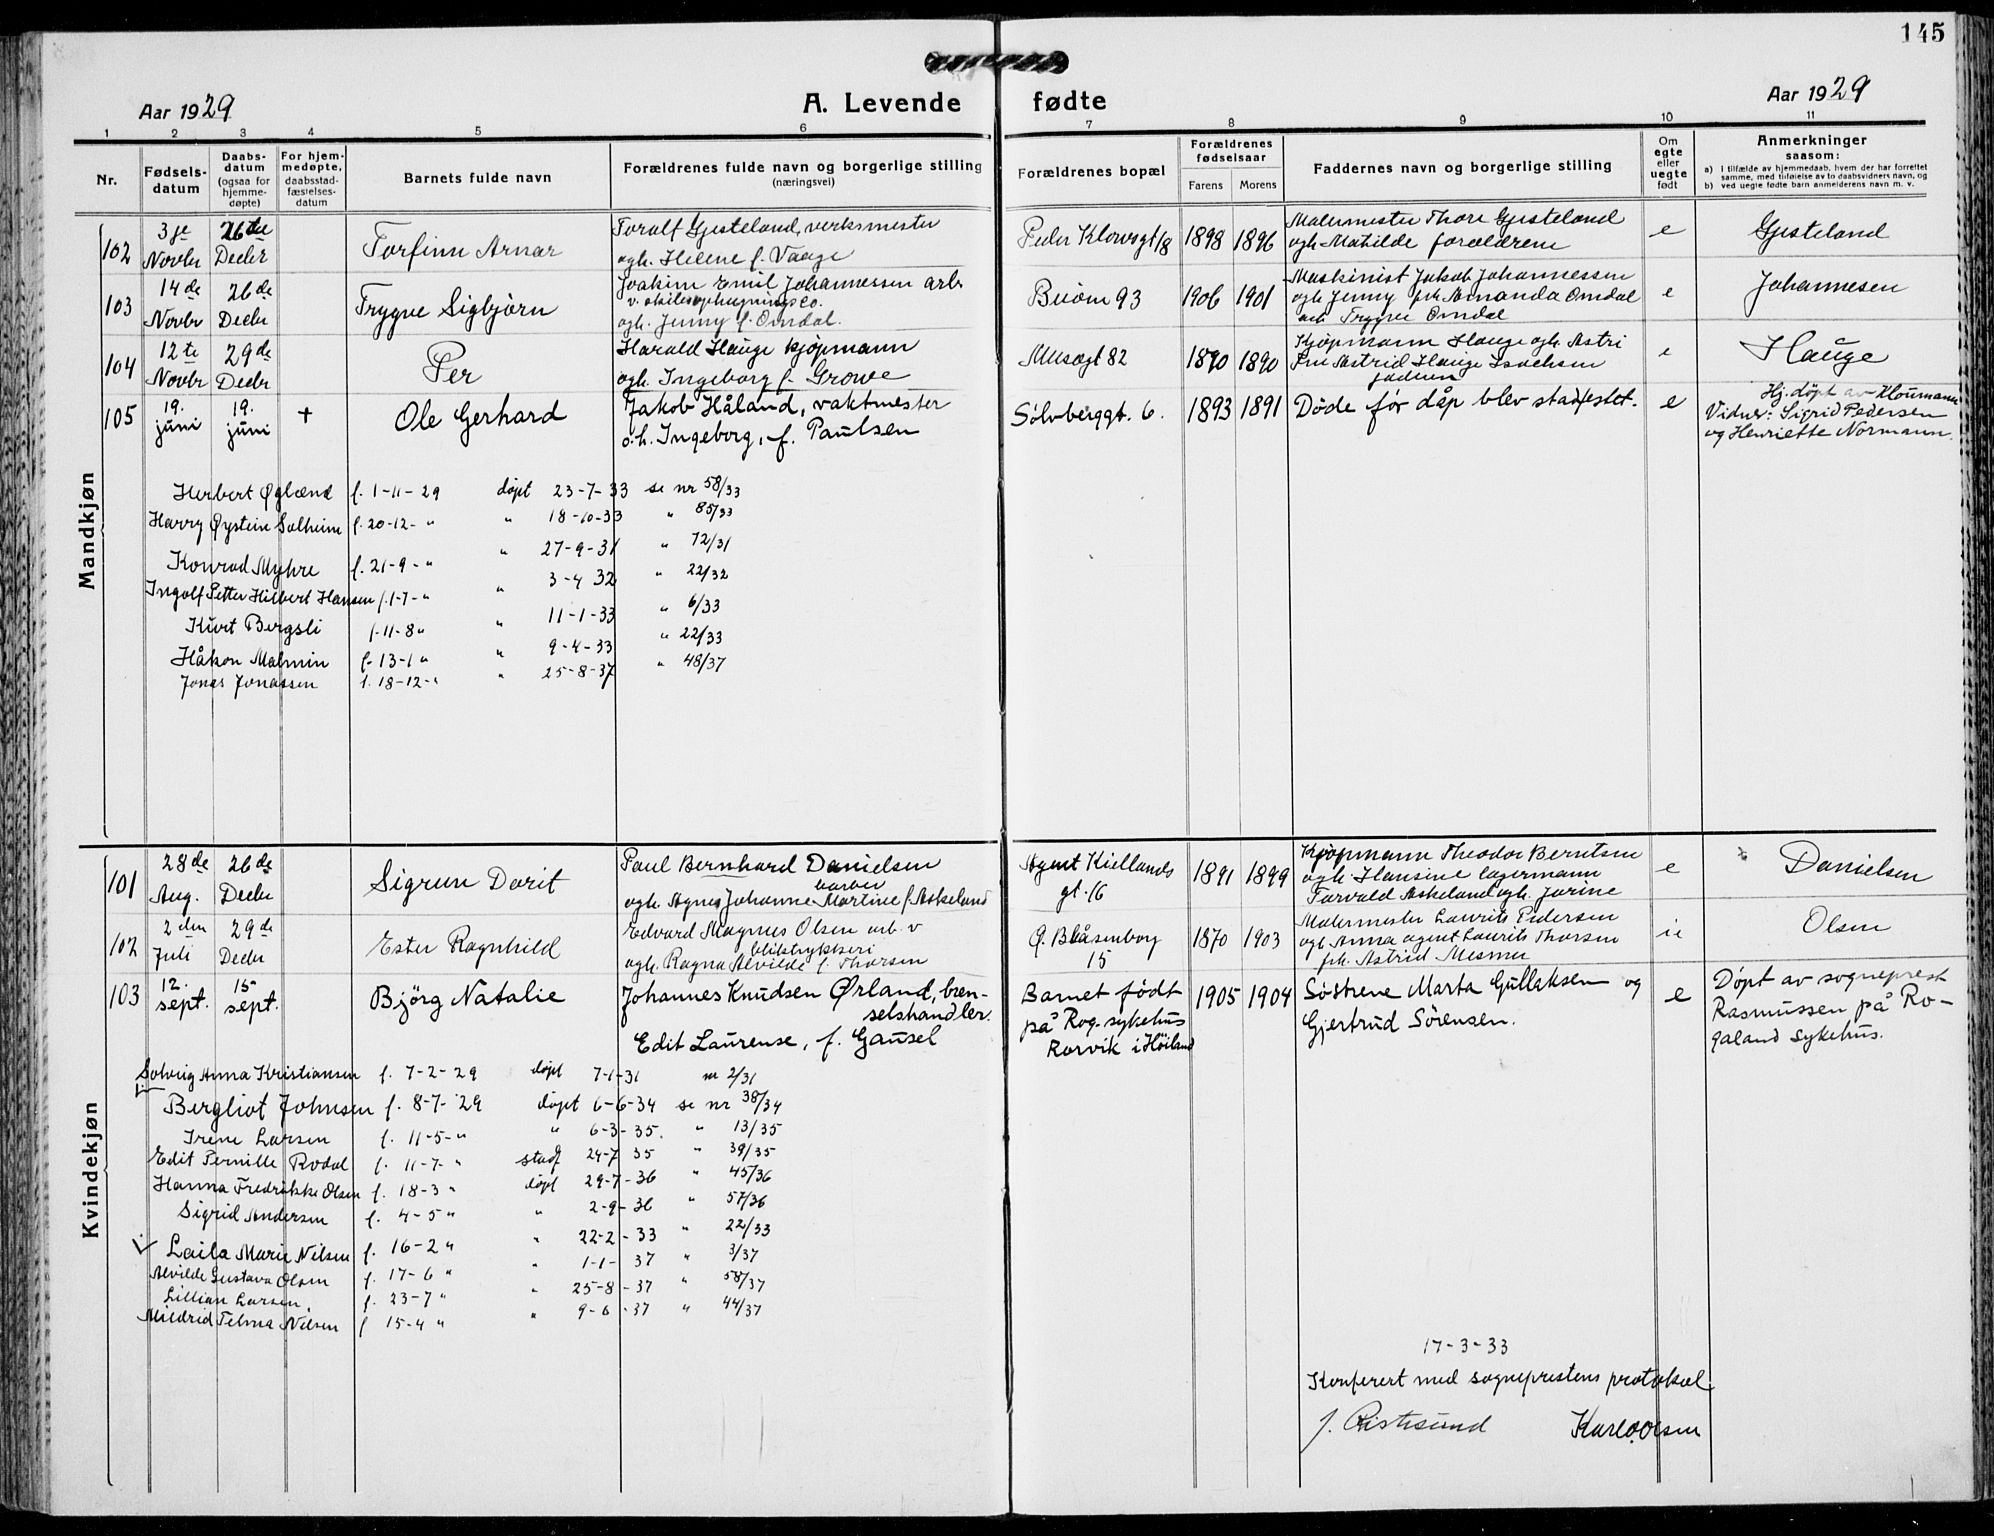 145
Aar 1929
A. Levende fødte
Aar 1929
1 2 3 4 5 6 7 8 9 10 11
Nr.
Fødsels-
datum
Daabs-
datum
(ogsaa for
hjemme-
døpte)
For hjem-
medøpte,
daabsstad-
fæstelses-
datum
Barnets fulde navn
Forældrenes fulde navn og borgerlige stilling
(næringsvei)
Forældrenes bopæl
Forældrenes
fødselsaar
Farens Morens
Faddernes navn og borgerlige stilling
Om
egte
eller
uegte
født
Anmerkninger
saasom:
a) I tilfælde av hjemmedaab, hvem der har forrettet
samme, med tilføielse av to daabsvidners navn, og
b) ved uegte fødte barn anmelderens navn m. v.
Mandkjøn
102
3je
Novbr
26de
Decbr
Torfinn Arnar
Toralf Gjesteland, verksmester
ogh. Helene f. Vaage
Peder Klowsgt 18
1898 1896
Malermester Thore Gjesteland
ogh Mathilde forældrene
e
Gjesteland
103
14de
Novbr
26de
Decbr
Trygve Sigbjörn
Joakim Emil Johannessen arb
v. skibsophugnings co.
ogh. Jenny f. Omdal.
Buöm 93
1906 1901
Maskinist Jakob Johannessen
ogh Jenny frk Amanda Omdal
arb Trygve Omdal
e
Johannesen
104
12te
Novbr
29de
Decbr
Per
Harald Hauge kjøpmann
ogh. Ingeborg f. Growe
Musegt 82
1890 1890
Kjøpmann Hauge ogh Astri
Fru Astrid Hauge Isachsen
faderen
e
Hauge
105
19.
juni
19.
juni
+
Ole Gerhard
Jakob Håland, vaktmester
o.h. Ingeborg, f. Paulsen
Sølvberggt. 6.
1893 1891
Døde før dåp blev stadfestet.
e
Hj. døpt av Kloumann
Vidner: Sigrid Pedersen
og Henriette Normann.
Herbert Øglænd f. 1-11-29 døpt 23-7-33 se nr 58/33
Harry Øystein Solheim f. 20-12- " " 18-10-33 " 85/33
Konrad Myhre f. 21-9- " " 27-9-31 " 72/31
Ingolf Petter Hilbert Hansen f. 1-7- " " 3-4 32 " 22/32
Kurt Bergsli f. 11-8 " " 11-1-33 " 6/33
Håkon Malmin f. 13-1 " " 9-4-33 " 22/33
Jonas Jonassen f. 18-12- " " 25-8-37 " 48/37
Kvindekjøn
101
28de
Aug.
26de
Decbr
Sigrun Dorit
Paul Bernhard Danielsen
barber
ogh. Agnes Johanne Martine f. Askeland
Agent Kiellands
gt. 16
1891 1899
Kjøpmann Theodor Berntsen
ogh. Hansine Lagermann
Torvald Askeland ogh. Jorine
e
Danielsen
102
2den
Juli
29de
Decbr
Ester Ragnhild
Edvard Magnus Olsen arb. v
bliktrykkeri
ogh. Ragna Alvilde f. Thorsen
G. Blåsenborg
15
1870 1903
Malermester Laurits Pedersen
ogh. Anna agent Laurits Thorsen
frk. Astrid Mesmer
e
Olsen
103
12.
sept.
15-
sept.
Bjørg Natalie
Johannes Knudsen Ørland, bren-
selshandler.
Edit Laurense, f. Gausel
Barnet født
på Rog. sykehus
Rorvik i Höiland
1905 1904
Søstrene Marta Gullaksen og
Gjertrud Sörensen.
e
Døpt av sogneprest
Rasmussen på Ro-
galand sykehus.
Solveig Anna Kristiansen f. 7-2-29 døpt 7-1-31 nr 2/31
Bergliot Johnsen f. 8-7-29 døpt 6-6-34 se nr 38/34
Irene Larsen f. 11-5- " " 6-3-35. " 13/35
Edit Pernille Rodal f. 11-7- " stadf 24-7 35 " 39/35
Hanna Fredrikke Olsen f. 18-3 " døpt 29-7-36 " 45/36
Sigrid Andersen f. 4-5 " " 2-9-36 " 57/36
Laila Marie Nilsen f. 16-2 " " 22-2-33 " 22/33
Alvilde Gustava Olsen f. 17-6 " " 1-1-37 " 3/37
Lillian Larsen. f. 23-7 " " 25-8-37 " 58/37
Mildrid Telma Nilsen f 15-4 " " 9-6-37 " 44/37
17-3-33
Konferert med sogneprestens protokol.
Karl O. Olsen